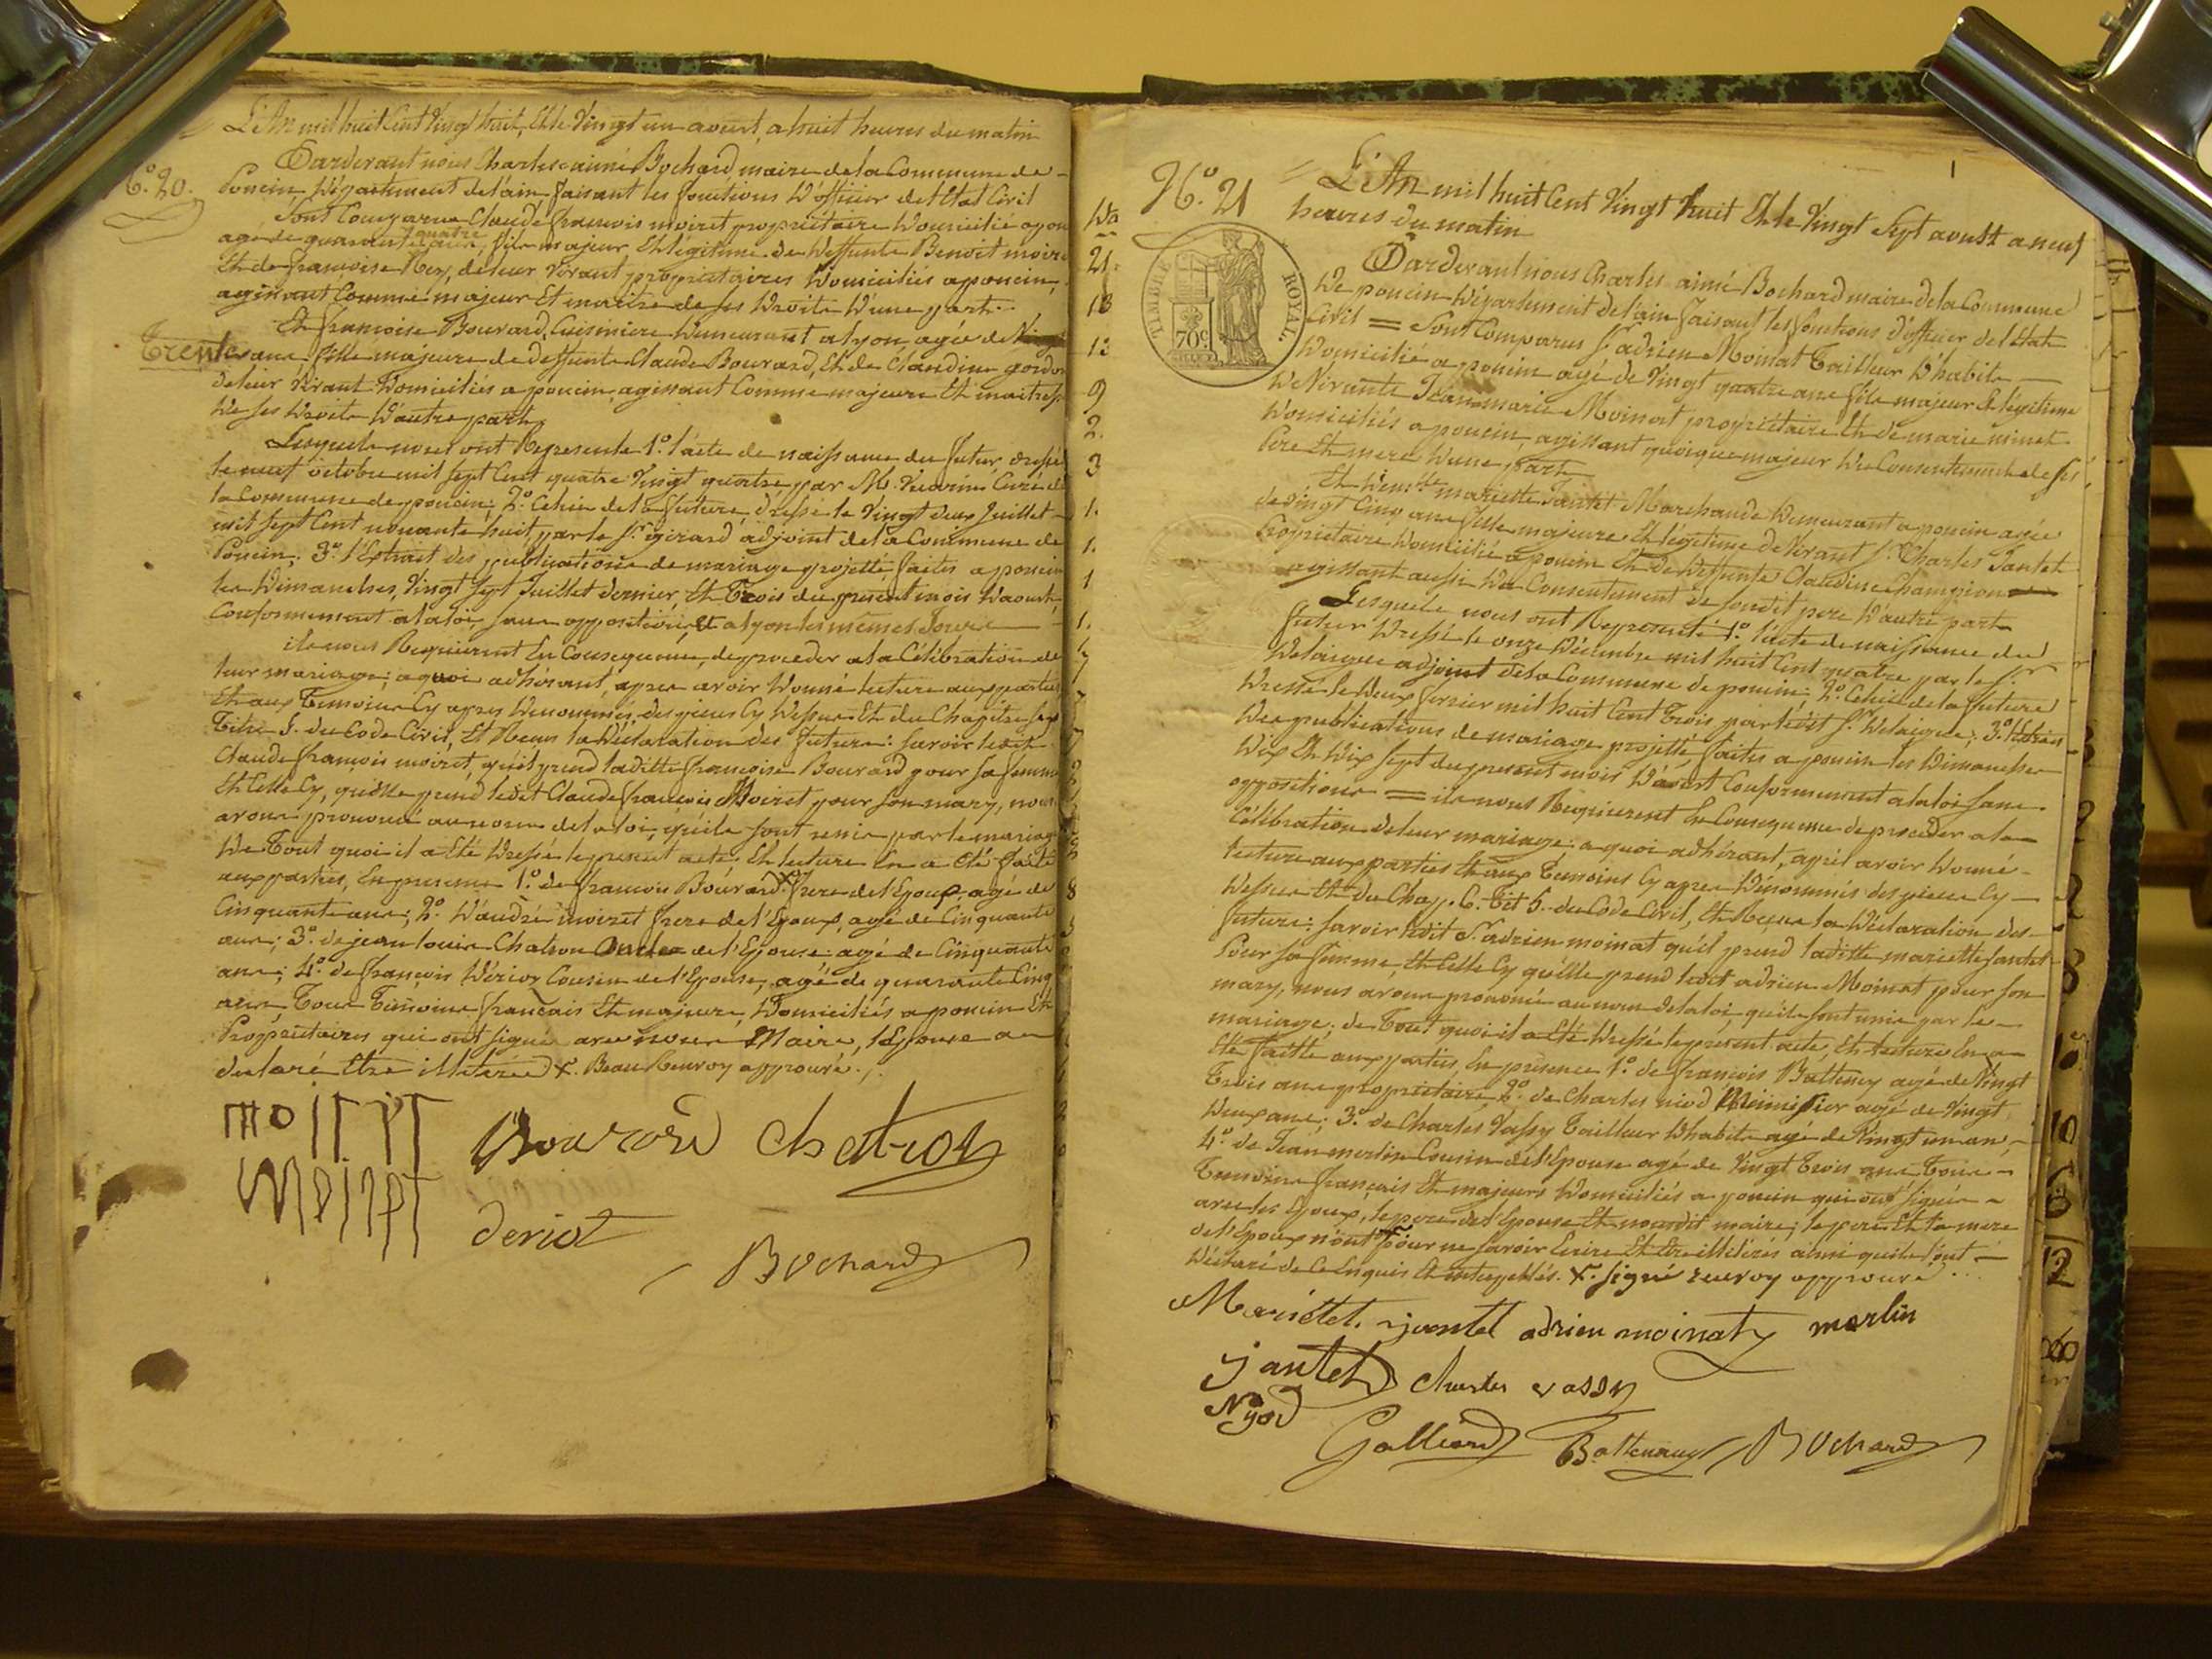 L'An mil huit Cent Vingt huit, Et le Vingt un aoust, a huit heures du matin
N.º 20.
Pardevant nous Charles aimé Bochard maire de la Commune de
Poncin, Département de l'ain, faisant les fonctions d'officier de l'Etat Civil
Sont Comparus Claude françois moiret propriétaire Domicilié a pon
agé de quarante quatre ans, fils majeur Et légitime de deffunts Benoit moire
Et de françoise Rey, de leur vivant propriétaires Domiciliés a poncin,
agissant Comme majeur Et maitre de ses Droits D'une part.
Et françoise Bouvard, Cuisiniere demeurant a lyon, agée de
Trente ans fille majeure de deffunts Claude Bouvard, Et de Claudine gordon
de leur vivant Domiciliés a poncin agissant Comme majeure Et maitresse
De ses Droits D'autre part,
Lesquels nous ont Représenté 1.º l'acte de naissance du futur dressé
le neuf octobre mil sept Cent quatre Vingt quatre par M. Curé d
la Commune de poncin; 2.º Celui de la future, dressé le Vingt deux Juillet
mil sept Cent nonante huit par le S.r girard adjoint de la Commune de
Poncin; 3.º l'Extrait des publications de mariage projetté, faites a poncin
les Dimanches, Vingt Sept Juillet dernier, Et Trois du present mois D'aoust,
Conformément a la loi, sans opposition, Et a lyon les mêmes Jours
ils nous Requierent En Consequence, de proceder a la Célébration de
leur mariage; a quoi adhérant, apres avoir Donné lecture aux parties
Et aux Temoins Cy apres Denommés, des pieces Cy Dessus Et du Chapitre six
Titre 5. du Code Civil, Et Recus la Déclaration des futurs: savoir ledit
Claude françois moiret, qu'il prend ladite françoise Bouvard pour sa femme
Et Celle Cy, qu'elle prend ledit Claude françois Moiret pour son mary, nous
avons prononcé au nom de la loi, qu'ils sont unis par le mariage
De Tout quoi il a Eté Dressé le present acte; Et lecture En a Eté faite
aux parties, En presence 1.º de françois Bouvard x frere de l'Epoux, agé de
Cinquante ans; 2.º D'andré moiret frere de l'Epoux, agé de Cinquante
ans; 3.º de jean louis Chatron Oncle de l'Epouse agé de Cinquante
ans; 4.º de françois Dériot Cousin de l'Epouse, agé de quarante Cinq
ans Tous Temoins français Et majeurs, Domiciliés a poncin Et
Propriétaires qui ont signé avec nous Maire, l'Epouse a
declaré Etre illitérée x. Beau Renvoy approuvé.
moiret
Bouvard Chatron
Moiret
deriot
Bochard
N.º 21
L'An mil huit Cent Vingt huit Et le Vingt Sept aoust a neuf
heures du matin
TIMBRE ROYAL
70c
Pardevant nous Charles aimé Bochard maire de la Commune
De poncin Département de l'ain faisant les fonctions d'officier de l'Etat
Civil = Sont Comparus S.r adrien Moinat Tailleur D'habits
Domicilié a poncin agé de Vingt quatre ans fils majeur Et légitime
De Vivants Jean marie Moinat propriétaire Et de marie minet
Domiciliés a poncin, agissant quoique majeur Du Consentement de ses
Pere Et mere D'une part
Et Dem.lle mariette Jantet Marchande Demeurant a poncin agée
de Vingt Cinq ans fille majeure Et légitime de Vivant S.r Charles Jantet
Propriétaire Domicilié a poncin Et de Deffunte Claudine Champion
agissant aussi Du Consentement de sondit pere D'autre part
Lesquels nous ont Représenté 1.º l'acte de naissance du
futur Dressé le onze Décembre mil huit Cent quatre par le S.r
Delaigue adjoint de la Commune de poncin; 2.º Celui de la future
Dressé le Deux fevrier mil huit Cent Trois par ledit S.r Delaigue; 3.º
Des publications de mariage projetté, faites a poncin les Dimanches
Dix Et Dix Sept du present mois D'aoust Conformement a la loi sans
oppositions = ils nous Requierent En Consequence de proceder a la
Célébration de leur mariage: a quoi adhérant, après avoir Donné
lecture aux parties Et aux Temoins Cy apres Dénommés des pieces Cy
Dessus Et du Chap. 6. Tit 5. du Code Civil, Et Recus la Déclaration des
futurs: savoir ledit S.r adrien moinat qu'il prend ladite mariette Jantet
Pour sa femme, Et Celle Cy qu'elle prend ledit adrien Moinat pour son
mary, nous avons prononcé au nom de la loi, qu'ils sont unis par le
mariage; de Tout quoi il a Eté Dressé le present acte, Et lecture En a
Eté faitte aux parties, En présence 1.º de françois Battenay agé de Vingt
Trois ans propriétaire, 2.º de Charles niod agé de Vingt
Deux ans; 3.º de Charles Vassy Tailleur D'habits agé de Vingt un an,
4.º de Jean merlin Cousin de l'Epouse agé de Vingt Trois ans Tous
Temoins français Et majeurs Domiciliés a poncin qui ont signé
avec les Epoux, le pere de l'Epouse Et nousdit maire; le pere Et la mere
de l'Epoux n'ont x pour ne savoir Ecrire Et Etre illitérés ainsi qu'ils l'ont
Déclaré de Ce Enquis Et interpellés. x. signé renvoy approuvé.
Mariette jantet adrien moinat merlin
jantet Charles vassy
Nyod
Galliard Battenay Bochard